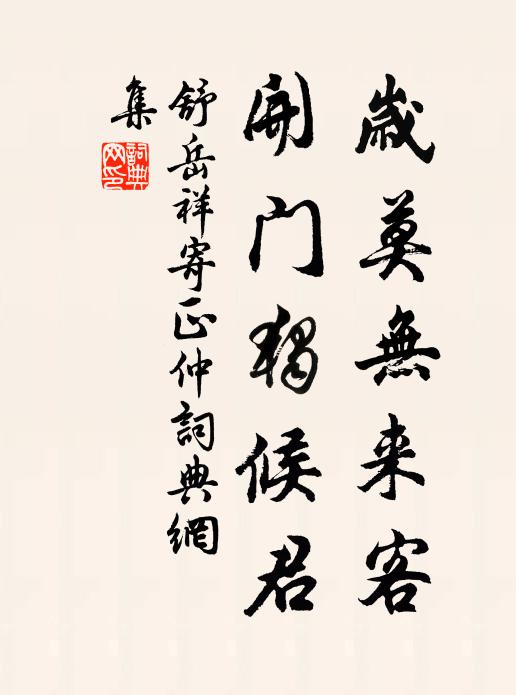 歳莫無来客
開門獨候君
舒岳祥寄正仲詞典網
集
詞典網印